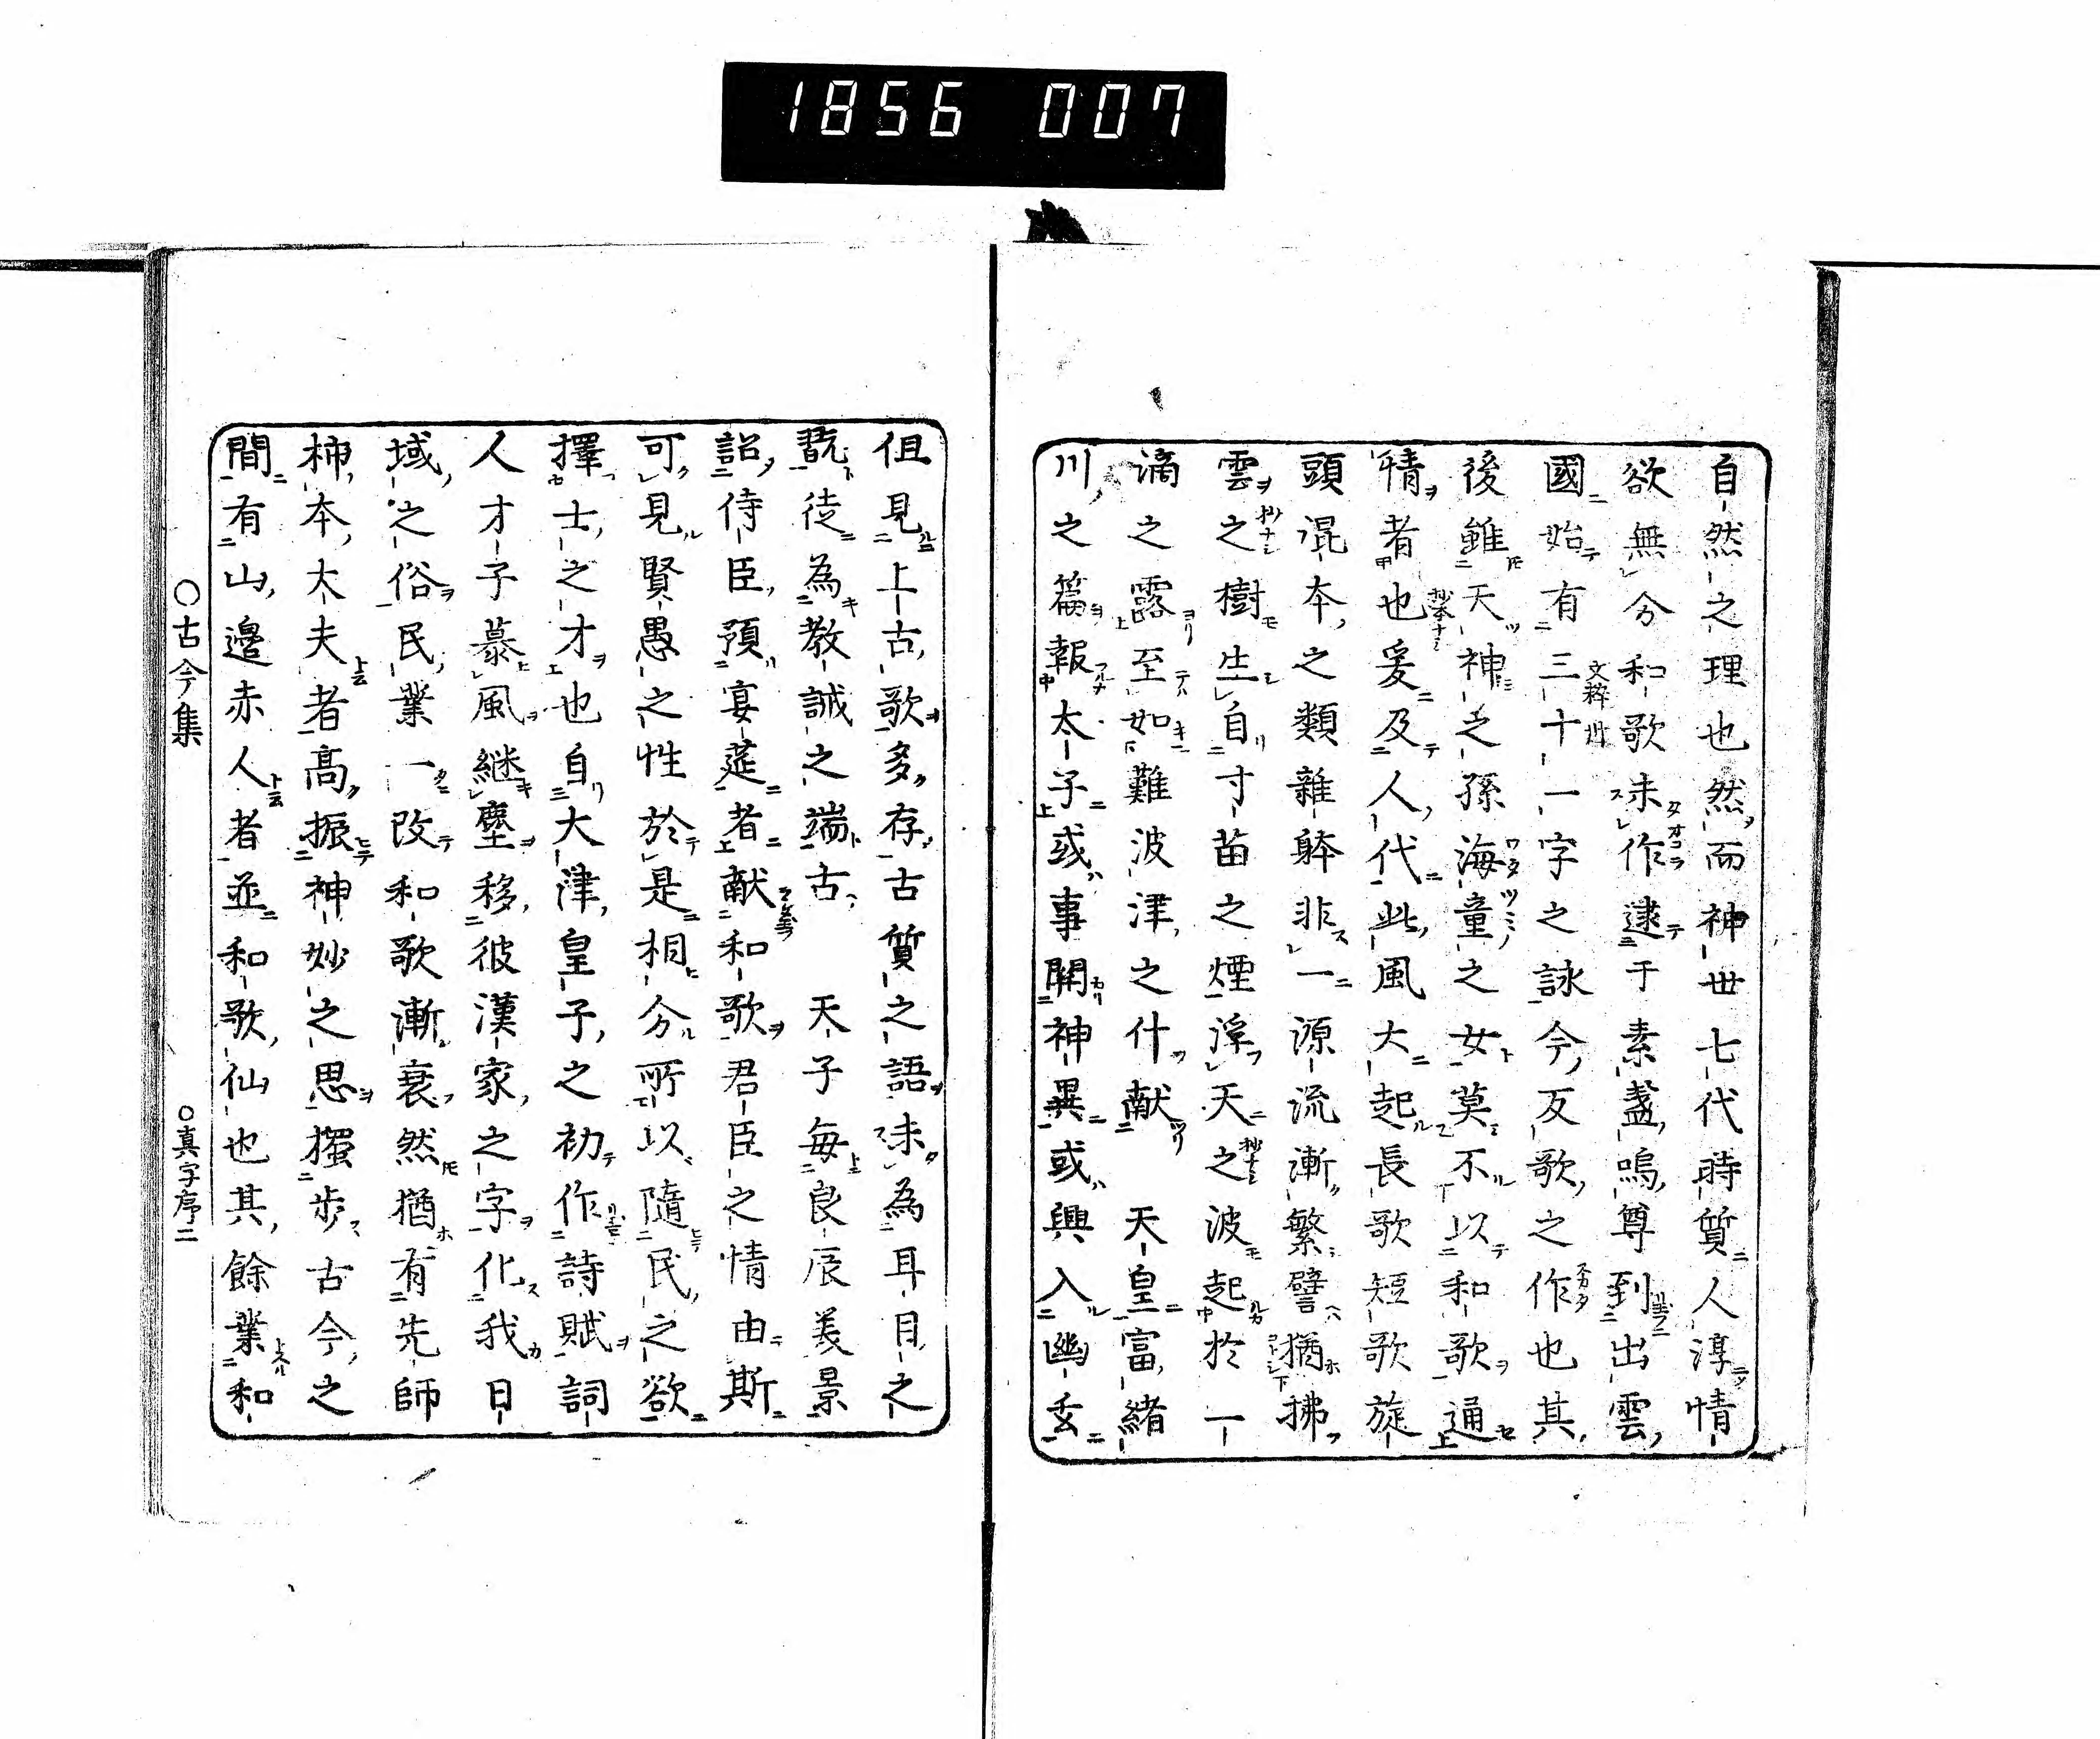 1856 007
自然之理也然而神世七代時質人淳情
欲無分和歌未作逮于素盞嗚尊到出雲
國始有三十一字之詠今反歌之作也其
後雖天神之孫海童之女莫不以和歌通
情者也爰及人代此風大起長歌短歌旋
頭混本之類雜躰非一源流漸繁譬猶拂
雲之樹生自寸苗之煙浮天之波起於一
滴之露至如難波津之什献　天皇富緒
川之篇報太子或事関神異或興入幽玄
但見上古歌多存古質之語未為耳目之
翫徒為教誡之端古　天子毎良辰美景
詔侍臣預宴莚者献和歌君臣之情由斯
可見賢愚之性於是相分所以隨民之欲
擇士之才也自大津皇子之初作詩賦詞
人才子慕風継塵移彼漢家之字化我日
域之俗民業一改和歌漸衰然猶有先師
柿本大夫者高振神妙之思獨步古今之
間有山邊赤人者並和歌仙也其餘業和
○古今集　○真字序二